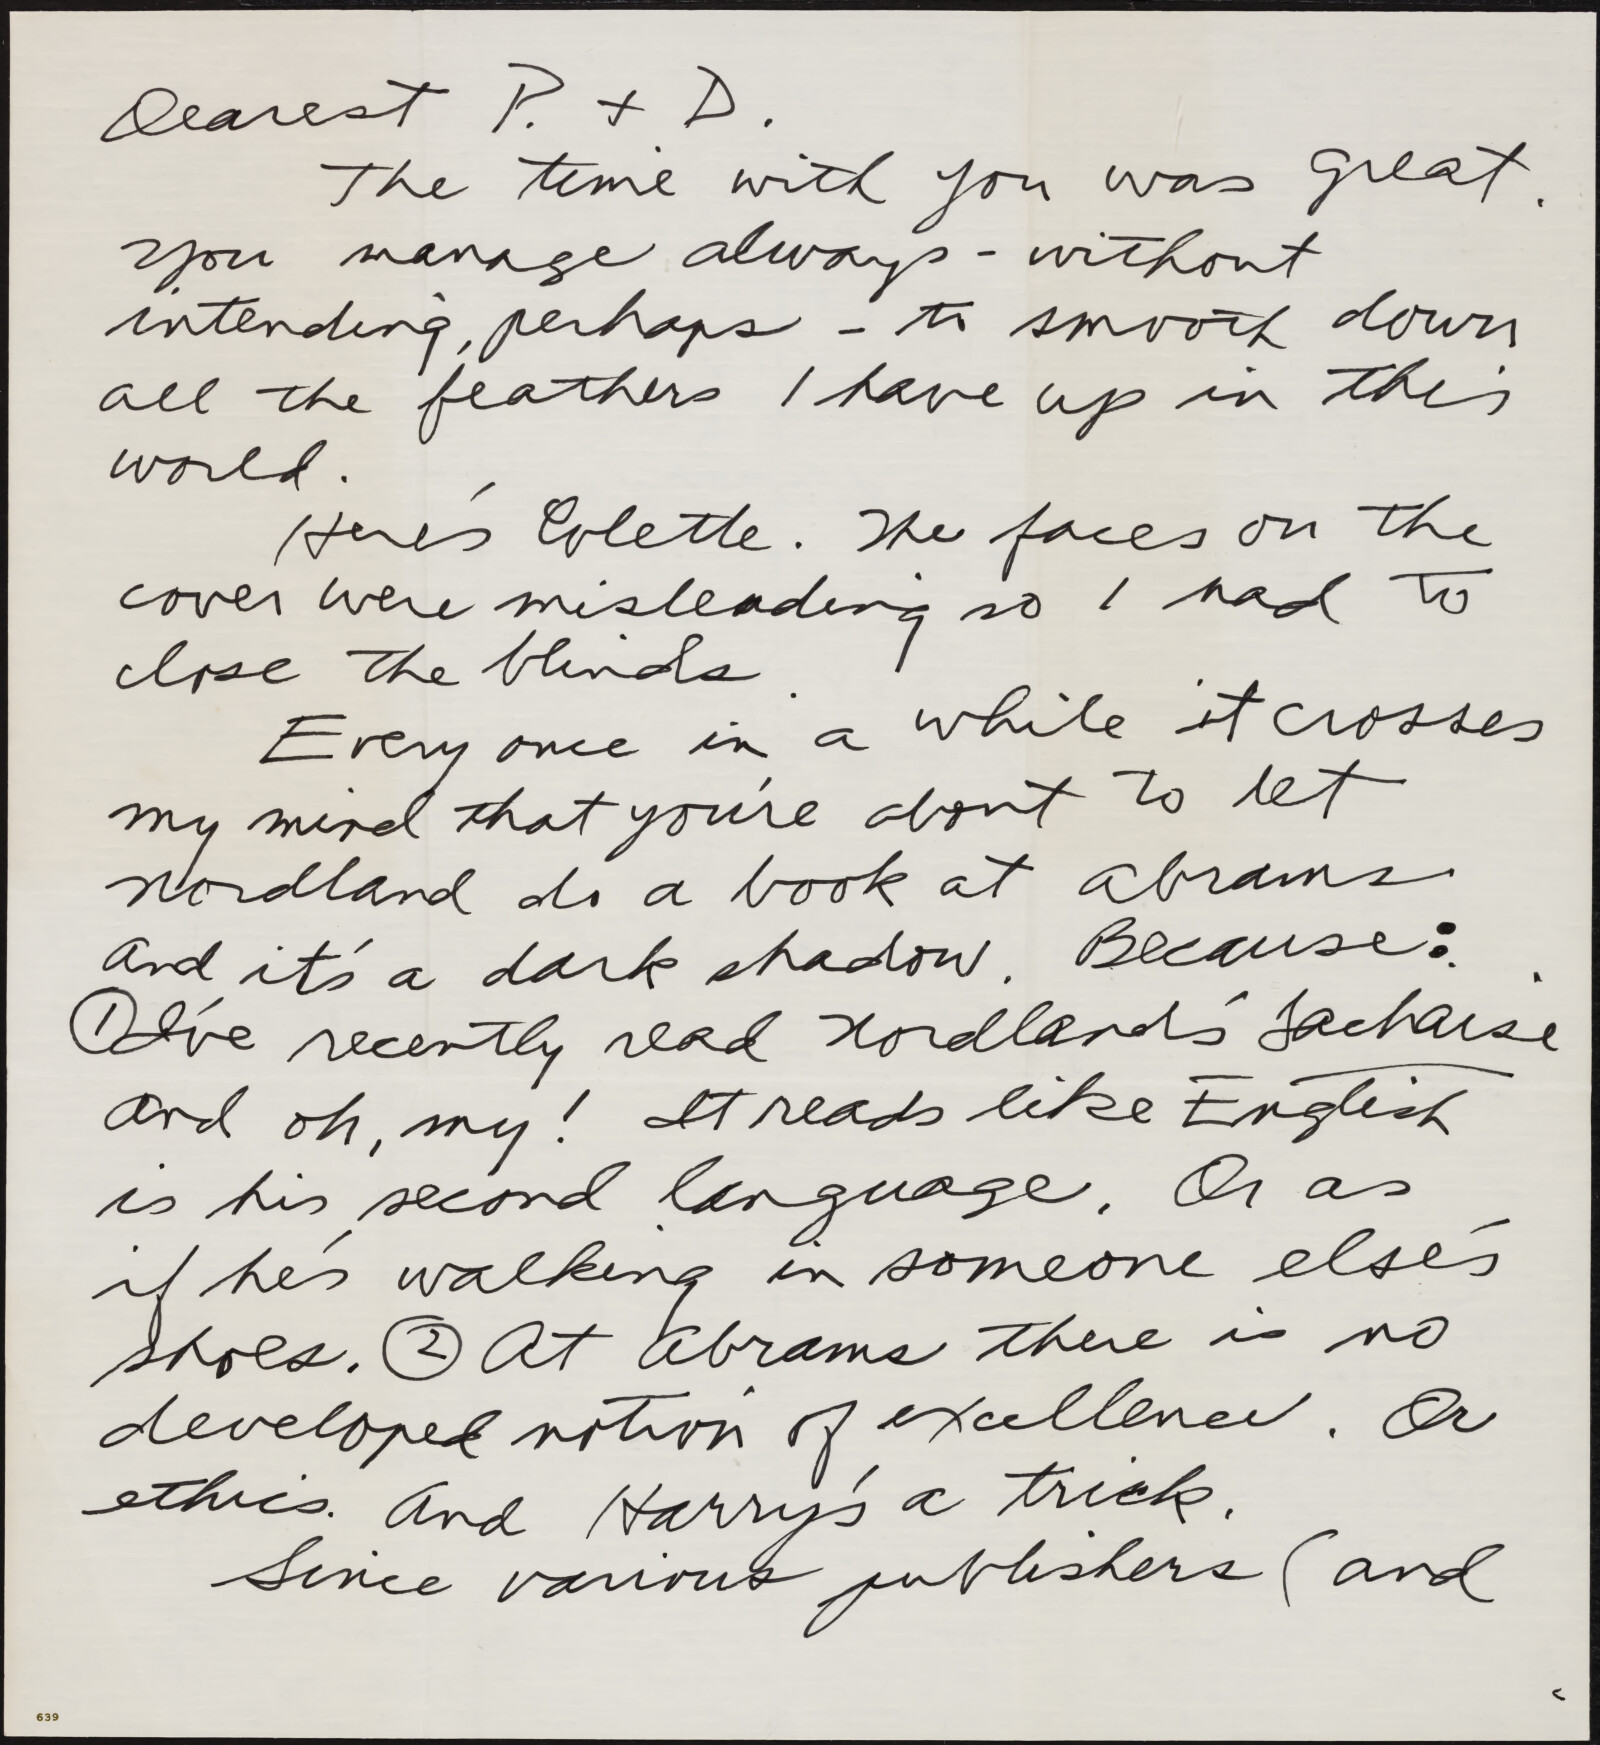 Dearest P. + D.
The time with you was great.
You manage always - without
intending, perhaps - to smooth down
all the feathers I have up in this
world.
Here's Colette. The faces on the
cover were misleading so I had to
close the blinds.
Every once in a while it crosses
my mind that you're about to let
Nordland do a book at Abrams.
And it's a dark shadow. Because:
① I've recently read Nordland's Lachaise
and oh, my! It reads like English
is his second language. Or as
if he's walking in someone else's
shoes. ② At Abrams there is no
developed notion of excellence. Or
ethics. And Harry's a trick.
Since various publishers (and
639